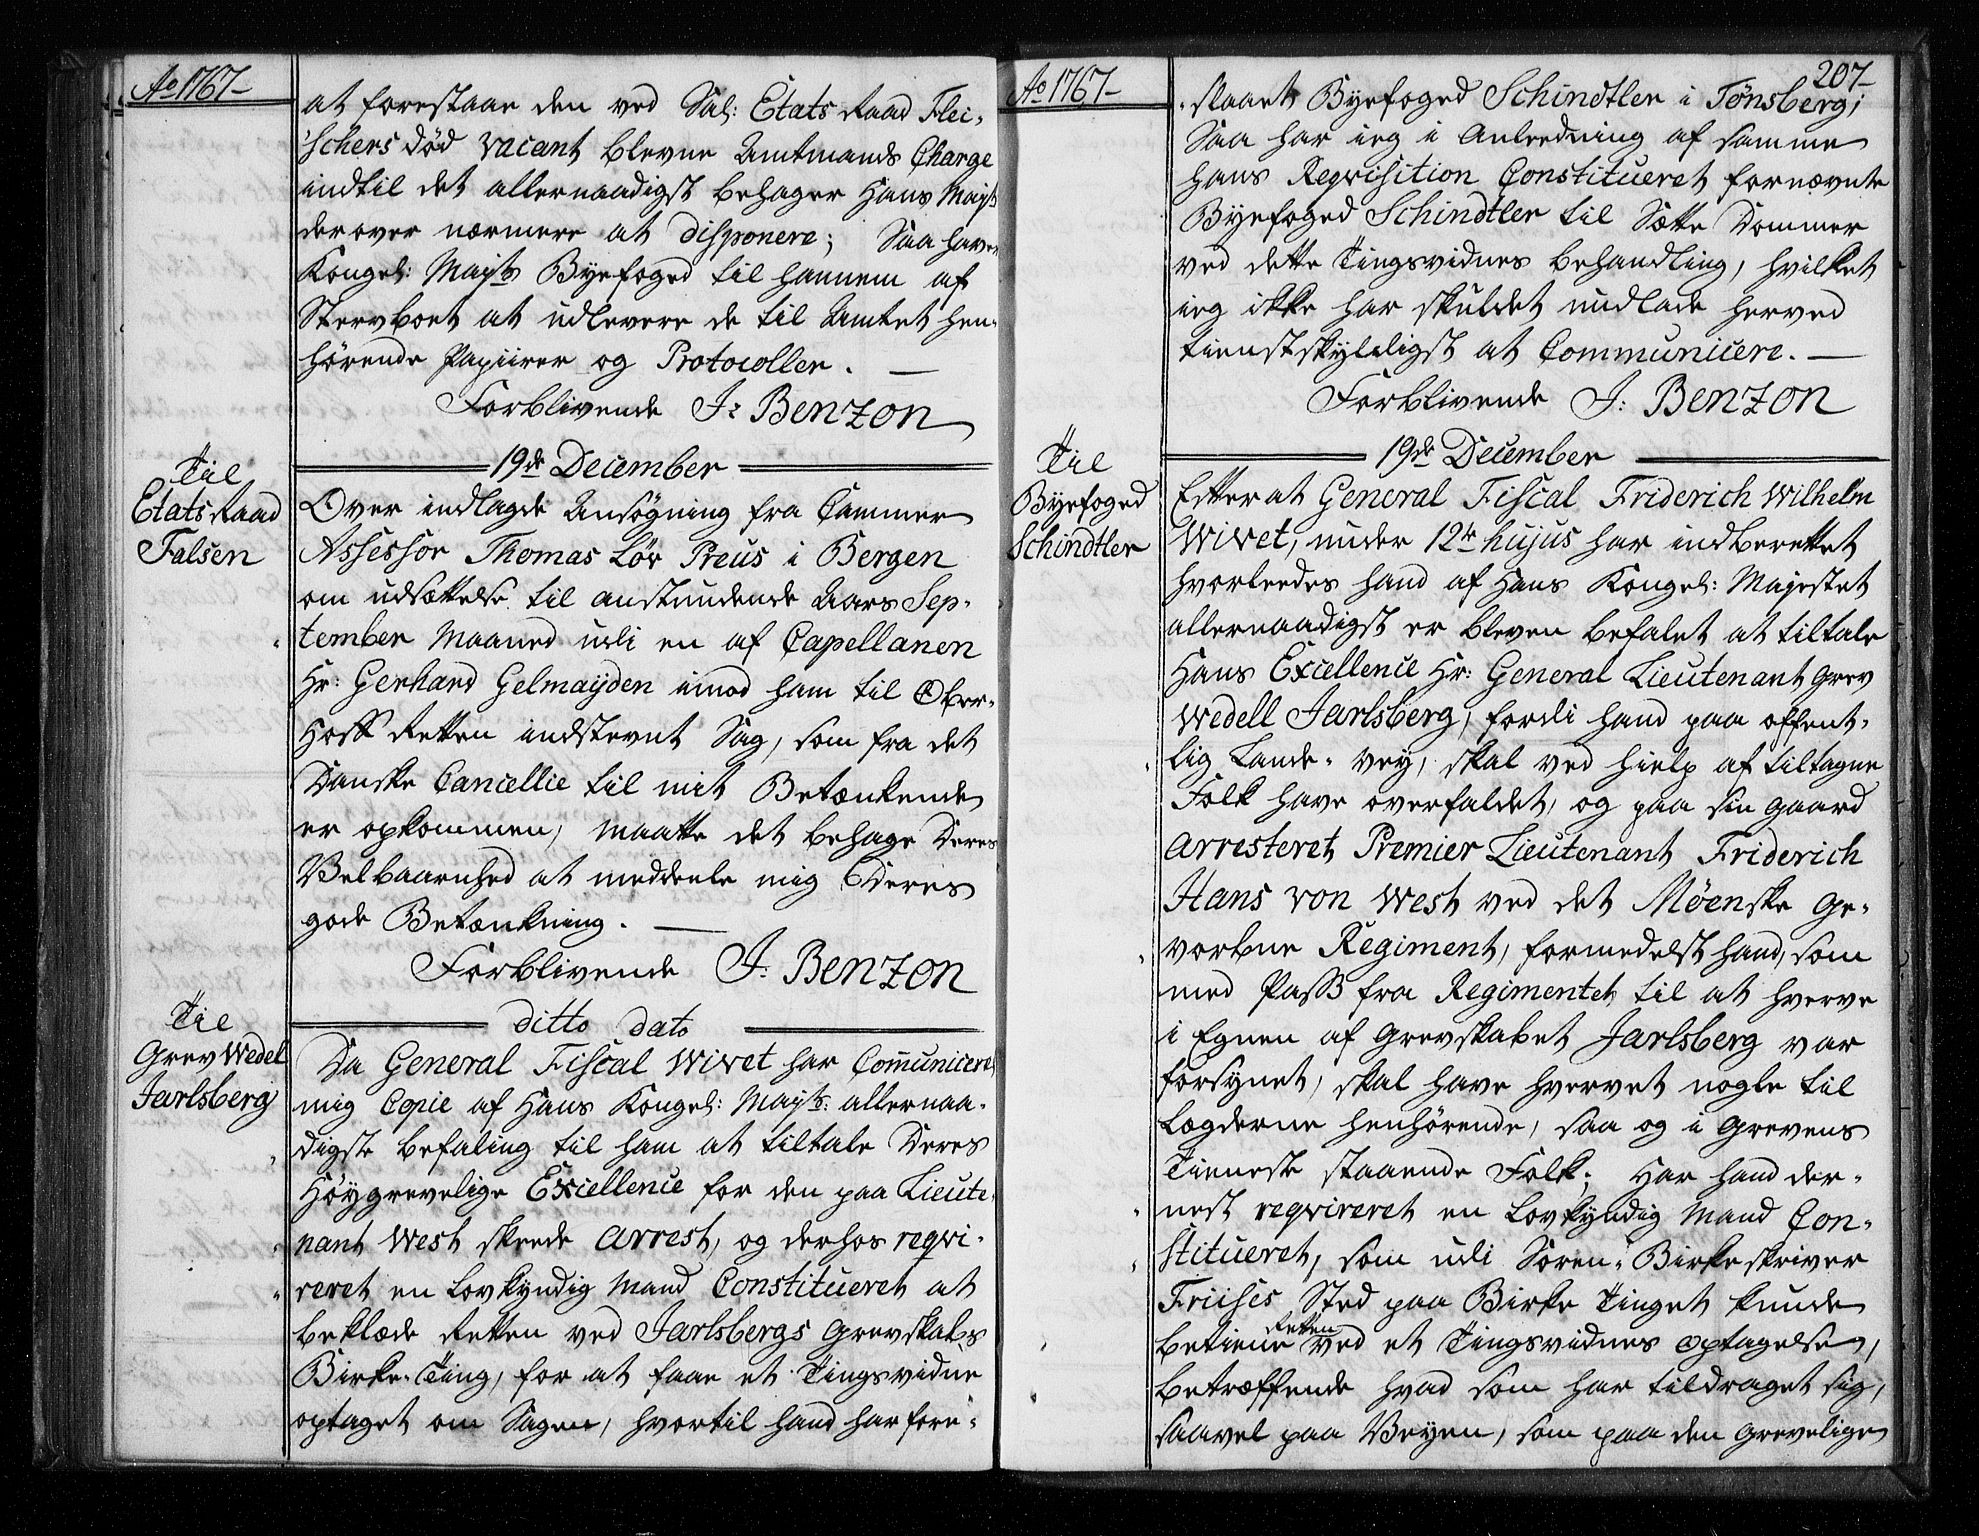 Ao 1767
at forestaae den ved Sal: Etats Raad Flei-
schers død vacant blevne Amtmands Charge
indtil det allernaadigst behager Hans Mayts
derover nærmere at disponere; Saa haver
Kongel: Mayts Byefoged til hannem af
Stervboet at udlevere de til Amtet hen-
hørende Papiirer og Protocoller.
Forblivende J: Benzon
19de December
Til
Etats Raad
Falsen
Over indlagde Ansøgning fra Cammer
Assessor Thomas Lør Preus i Bergen
om udsættelse til anstundende Aars Sep-
tember Maaned udi en af Capellanen
Hr: Gerhard Gelmaÿden imod ham til Over-
Hoff Retten indstevnt Sag, som fra det
Danske Cancellie til mit Betænkende
er opkommen, maatte det behage Deres
Velbaarnhed at meddeele mig Deres
gode Betænkning.
Forblivende J: Benzon
ditto dato
Til
Grev Wedel
Jarlsberg
Da General Fiscal Wivet har Com̄uniceret
mig Copie af Hans Kongel: Mayts: allernaa-
digste befaling til ham at tiltale Deres
Høygrevelige Excellence for den paa Lieute-
nant West skeede Arrest, og derhos reqvi-
reret en Lovkyndig Mand Constitueret at
beklæde Retten ved Jarlsbergs Grevskabs
Birke-Ting, for at faae et Tingsvidne
optaget om Sagen, hvortil hand har fore-
Ao 1767
207
slaaet Byefoged Schindtler i Tønsberg;
Saa har ieg i Anleedning af samme
hans Reqvisition Constitueret fornævnte
Byefoged Schindtler til Sætte Dommer
ved dette Tingsvidnes behandling, hvilket
ieg ikke har skuldet undlade herved
tienstskyldigst at Communicere.
Forblivende J: Benzon
19de December
Til
Byefoged
Schindtler
Efter at General Fiscal Friderich Wilhelm
Wivet, under 12te hujus har indberettet
hvorleedes hand af Hans Kongel: Majestet
allernaadigst er bleven befalet at tiltale
Hans Excellence Hr: General Lieutenant Grev
Wedell Jarlsberg, fordi hand paa offent-
lig Lande-vey, skal ved hielp af tiltagne
Folk have overfaldet, og paa sin gaard
arresteret Premier Lieutenant Friderich
Hans von West ved det Møenske ge-
vorbne Regiment, formedelst hand, som
med Pass fra Regimentet til at hverve
i Egnen af Grevskabet Jarlsberg var
forsynet, skal have hvervet nogle til
Lægderne henhørende, saa og i Grevens
Tieneste staaende Folk; Har hand der-
nest reqvireret en Lovkyndig Mand Con-
stitueret, som udi Soren-Birkeskriver
Friises Sted paa Birke Tinget kunde
betiene Retten ved et Tingsvidnes optagelse,
betræffende hvad som har tildraget sig,
saavel paa Veyen, som paa den Grevelige